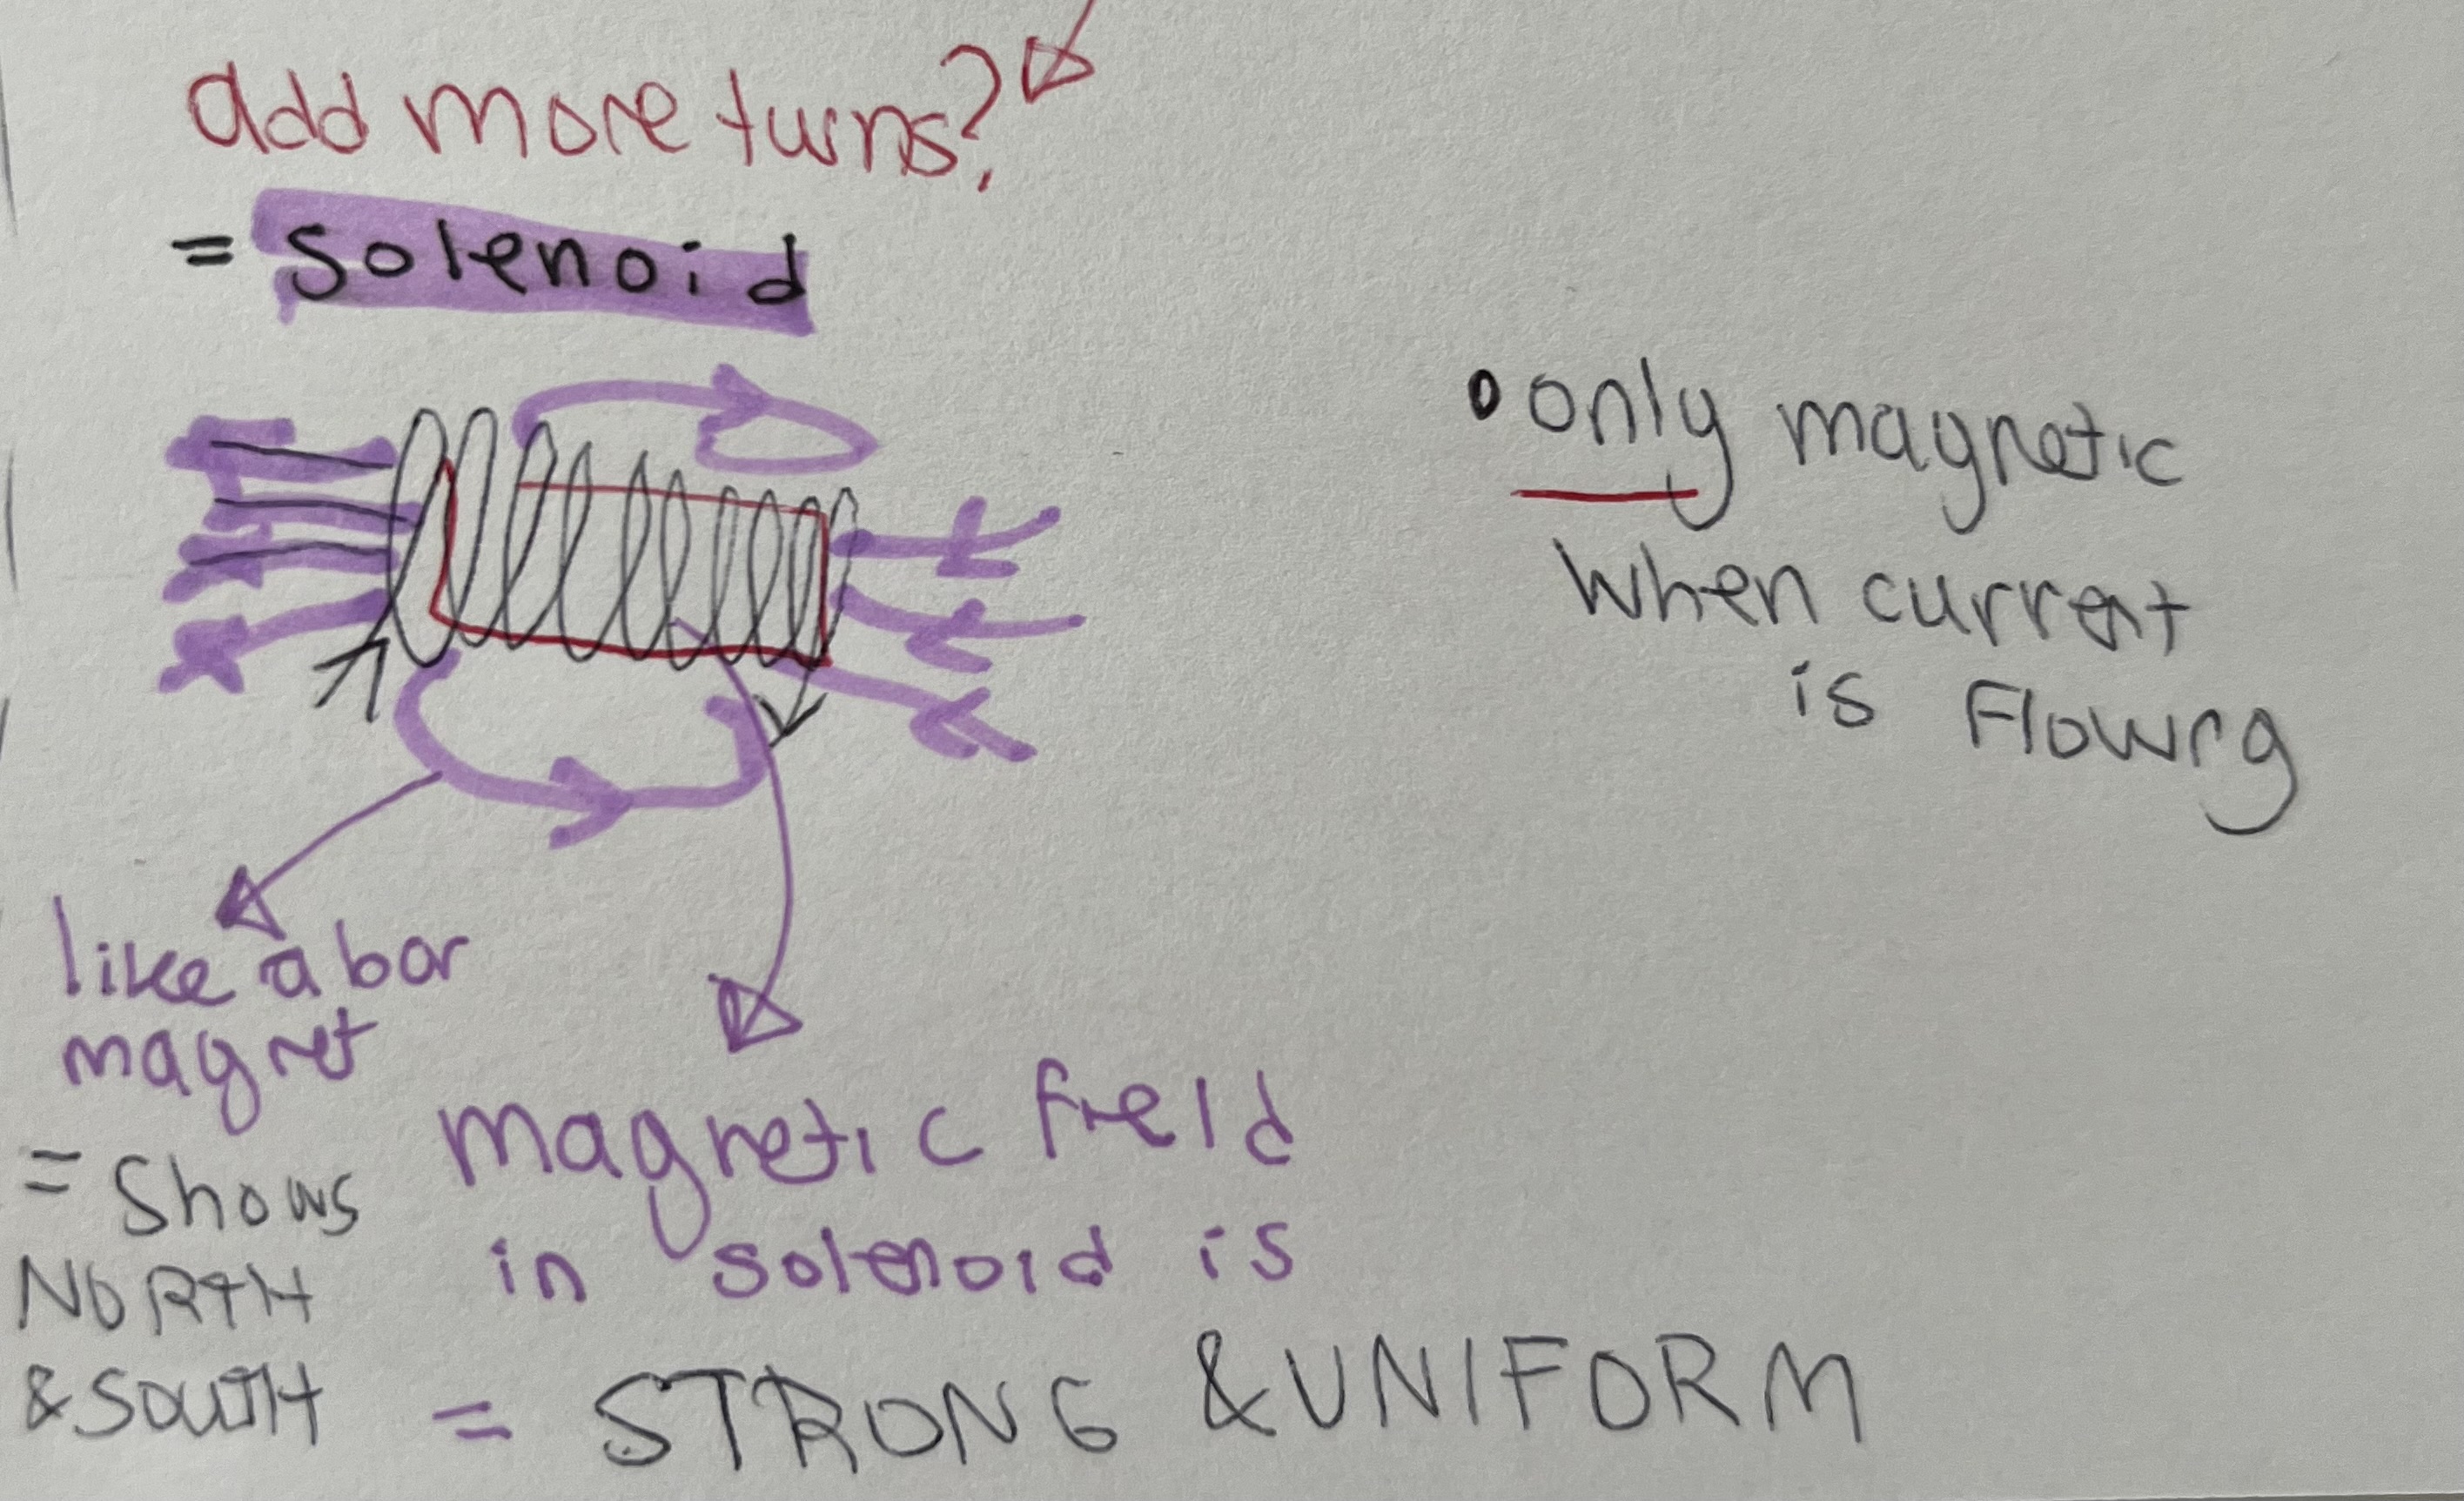 add more turns?
= solenoid
• only magnetic
when current
is Flowing
like a bar
magnet
= Shows
NORTH
& SOUTH
magnetic field
in solenoid is
= STRONG & UNIFORM